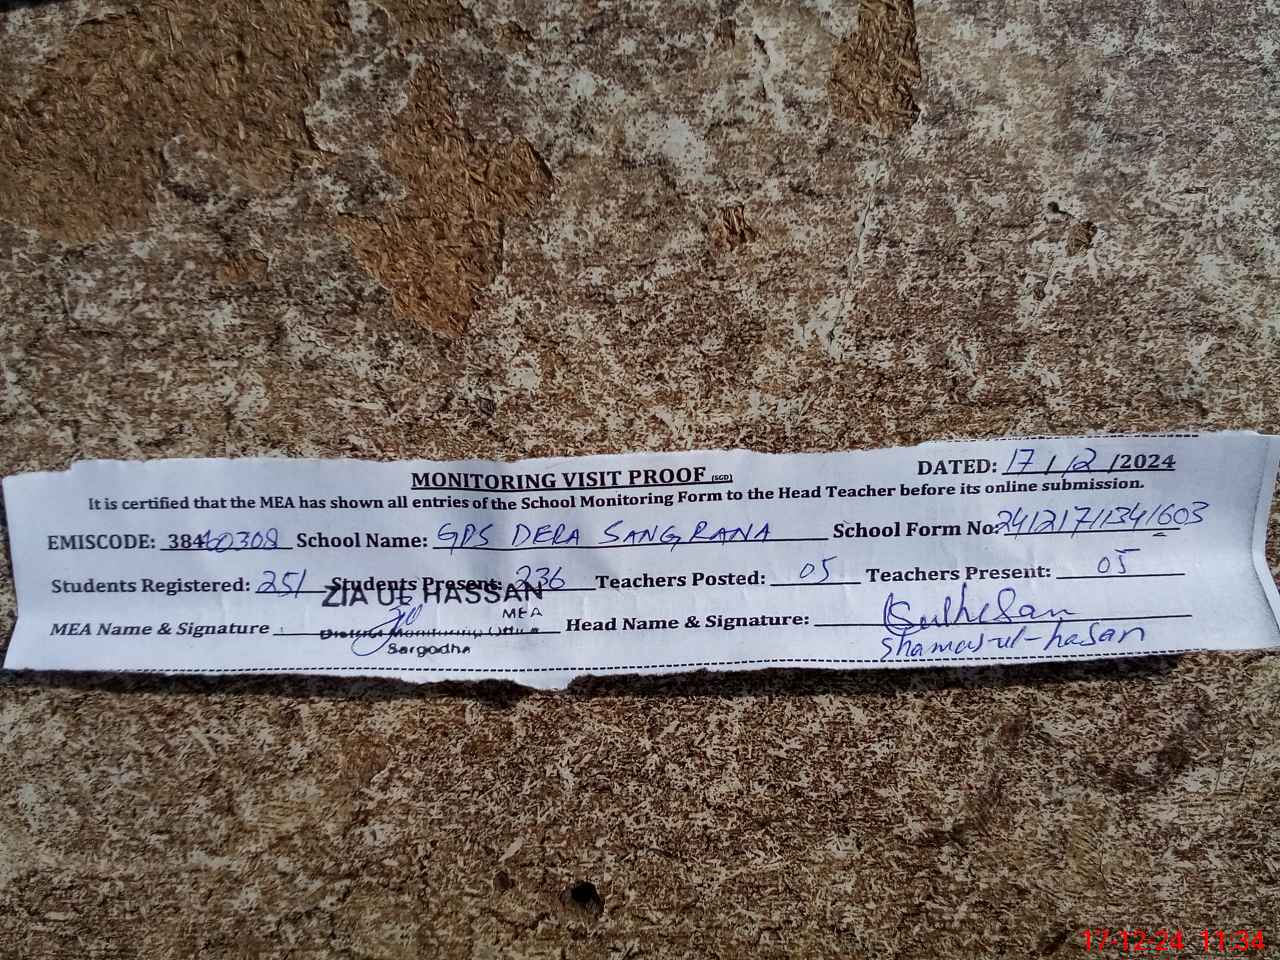 MONITORING VISIT PROOF (SGD) DATED: 17/12/2024
It is certified that the MEA has shown all entries of the School Monitoring Form to the Head Teacher before its online submission.
EMISCODE: 38460308 School Name: GPS DERA SANGRANA School Form No: 24121711341603
Students Registered: 251 Students Present: 236 Teachers Posted: 05 Teachers Present: 05
ZIA UL HASSAN
MEA
MEA Name & Signature District Monitoring Office Head Name & Signature:
Sargodha
Shamas-ul-hasan
17-12-24 11:34